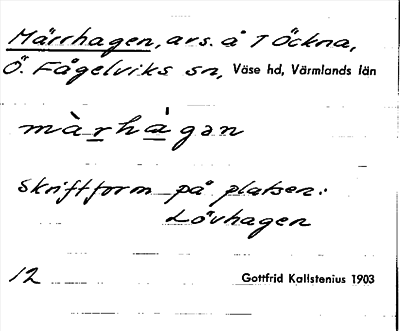 Märrhagen, avs. å 1 Öckna,
Ö. Fågelviks sn, Väse hd, Värmlands län
màrhágan
Skriftform på platsen:
Lövhagen
12 Gottfrid Kallstenius 1903